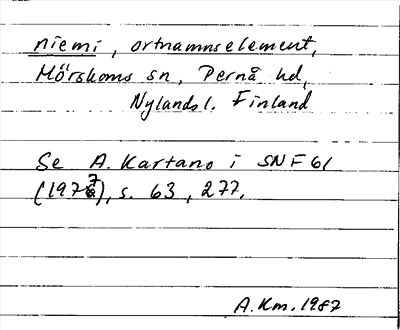 niemi, ortnamnselement,
Mörskoms sn, Pernå hd,
Nylands l. Finland
Se A. Kartano i SNF 61
(1977), s. 63, 277.
A. Km. 1987